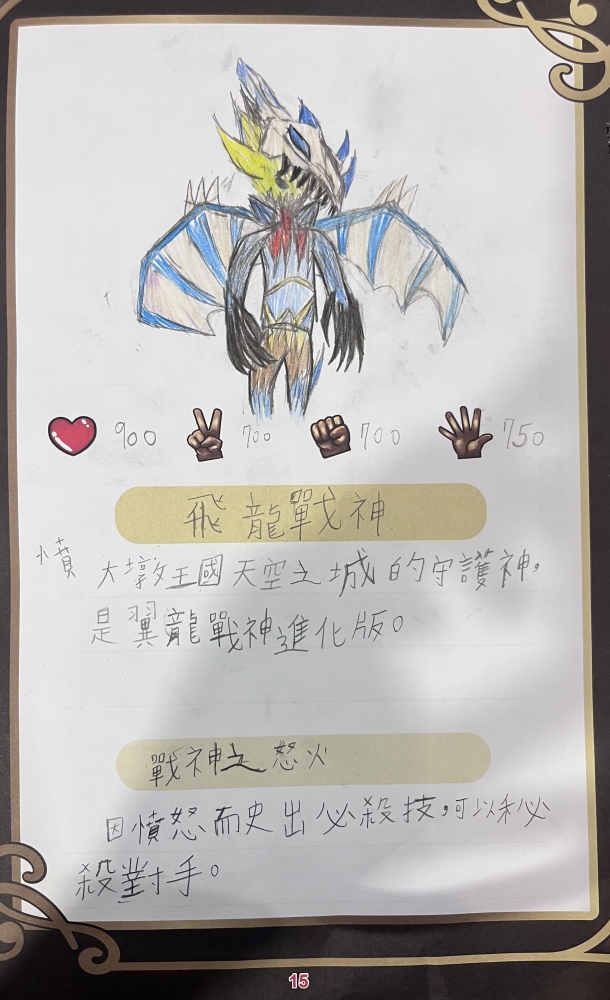 900 700 700 750
飛龍戰神
憤
大墩王國天空之城的守護神,
是翼龍戰神進化版。
戰神之怒火
因憤怒而史出必殺技,可以秘
殺對手。
15